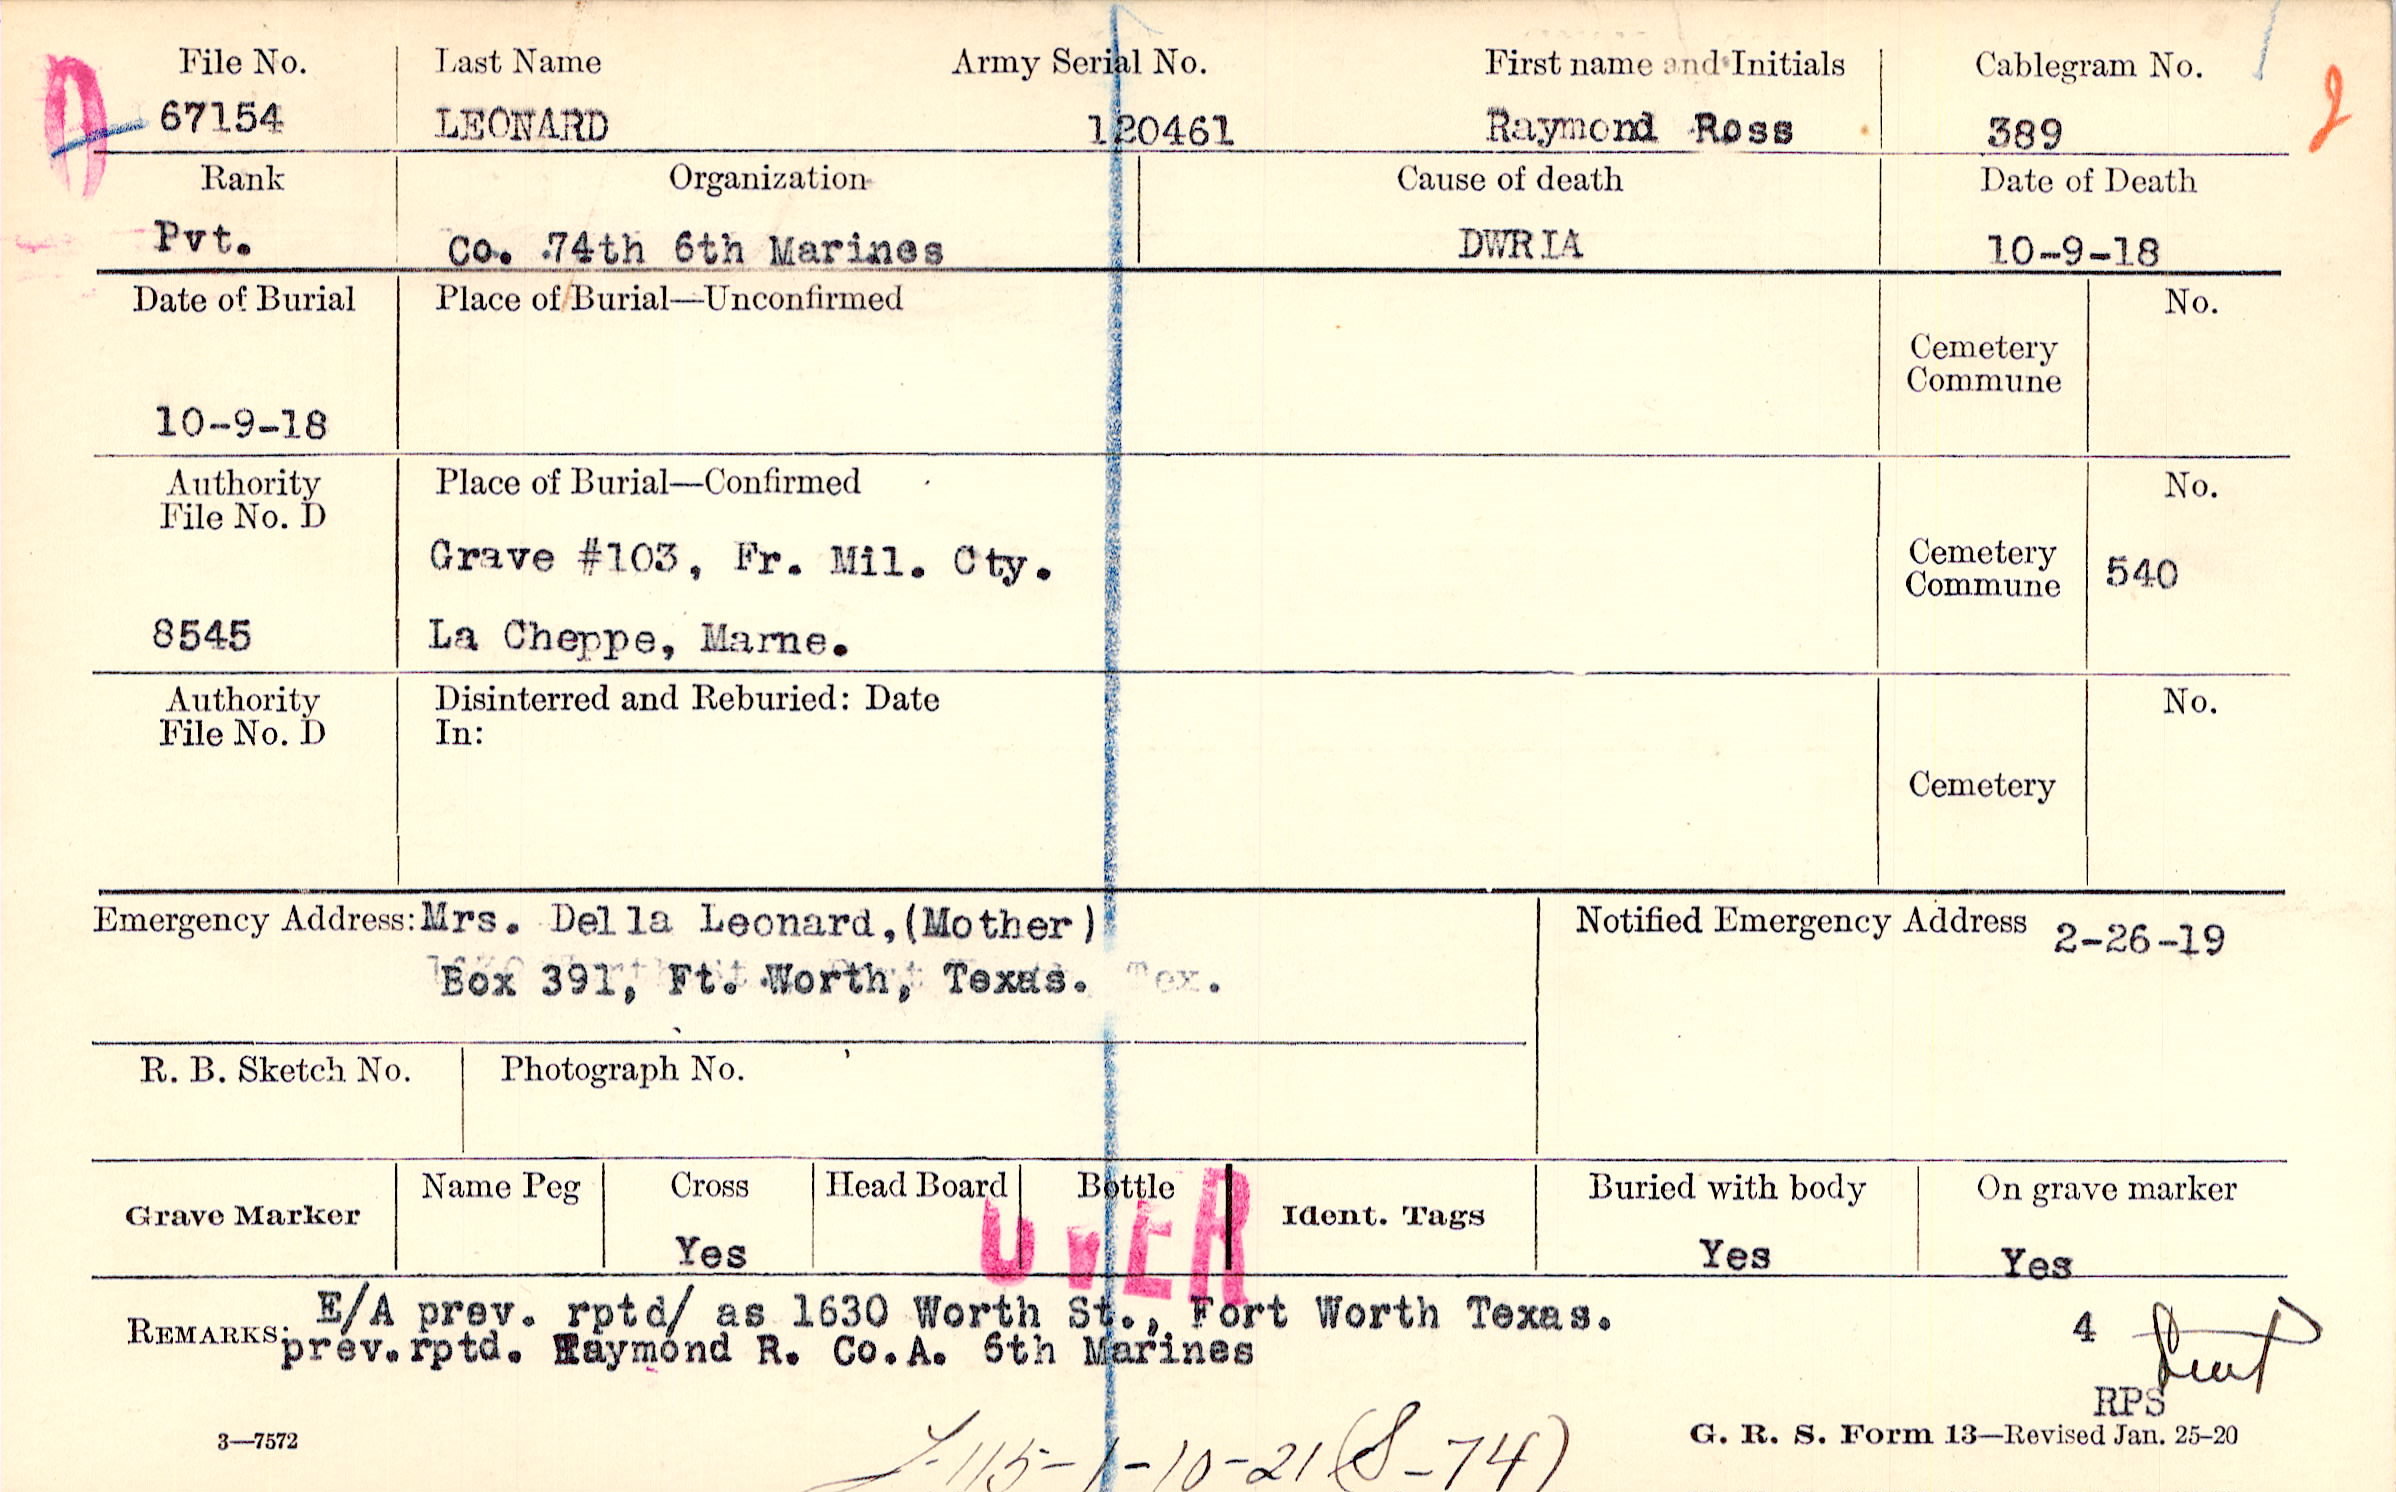 File No. Last Name Army Serial No. First name and Initials Cablegram No.
67154 LEONARD 120461 Raymond Ross 389
Rank Organization Cause of death Date of Death
Pvt. Co. 74th 6th Marines DWRIA 10-9-18
Date of Burial Place of Burial—Unconfirmed No.
Cemetery
Commune
10-9-18
Authority Place of Burial—Confirmed No.
File No. D
Grave #103, Fr. Mil. Cty. Cemetery
Commune 540
8545 La Cheppe, Marne.
Authority Disinterred and Reburied: Date No.
File No. D In:
Cemetery
Emergency Address: Mrs. Della Leonard,(Mother) Notified Emergency Address 2-26-19
Box 391, Ft. Worth, Texas. Tex.
R. B. Sketch No. Photograph No.
Grave Marker Name Peg Cross Head Board Bottle Ident. Tags Buried with body On grave marker
Yes Yes Yes
OVER
E/A prev. rptd/ as 1630 Worth St., Fort Worth Texas. 4
REMARKS: prev.rptd. Raymond R. Co.A. 6th Marines
RPS
3—7572 G. R. S. Form 13—Revised Jan. 25-20
-115-1-10-21 (S-74)